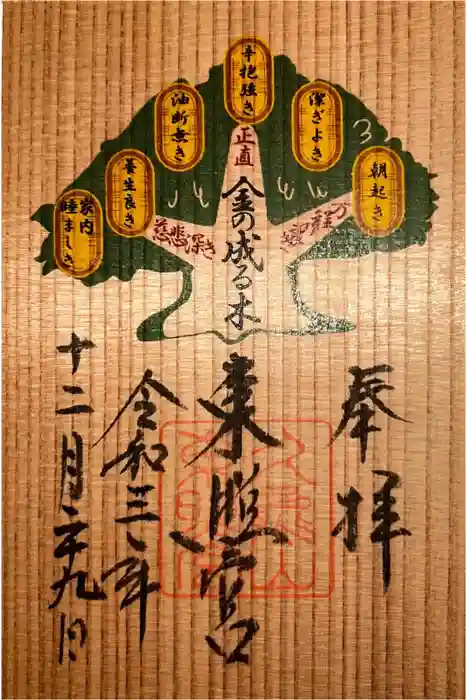 朝起き
潔ぎよき
辛抱強き
油断無き
養生良き
家内
睦ましき
万程
正直
慈悲深き
金の成る木
奉拝
東照宮
令和三年
十二月二十九日